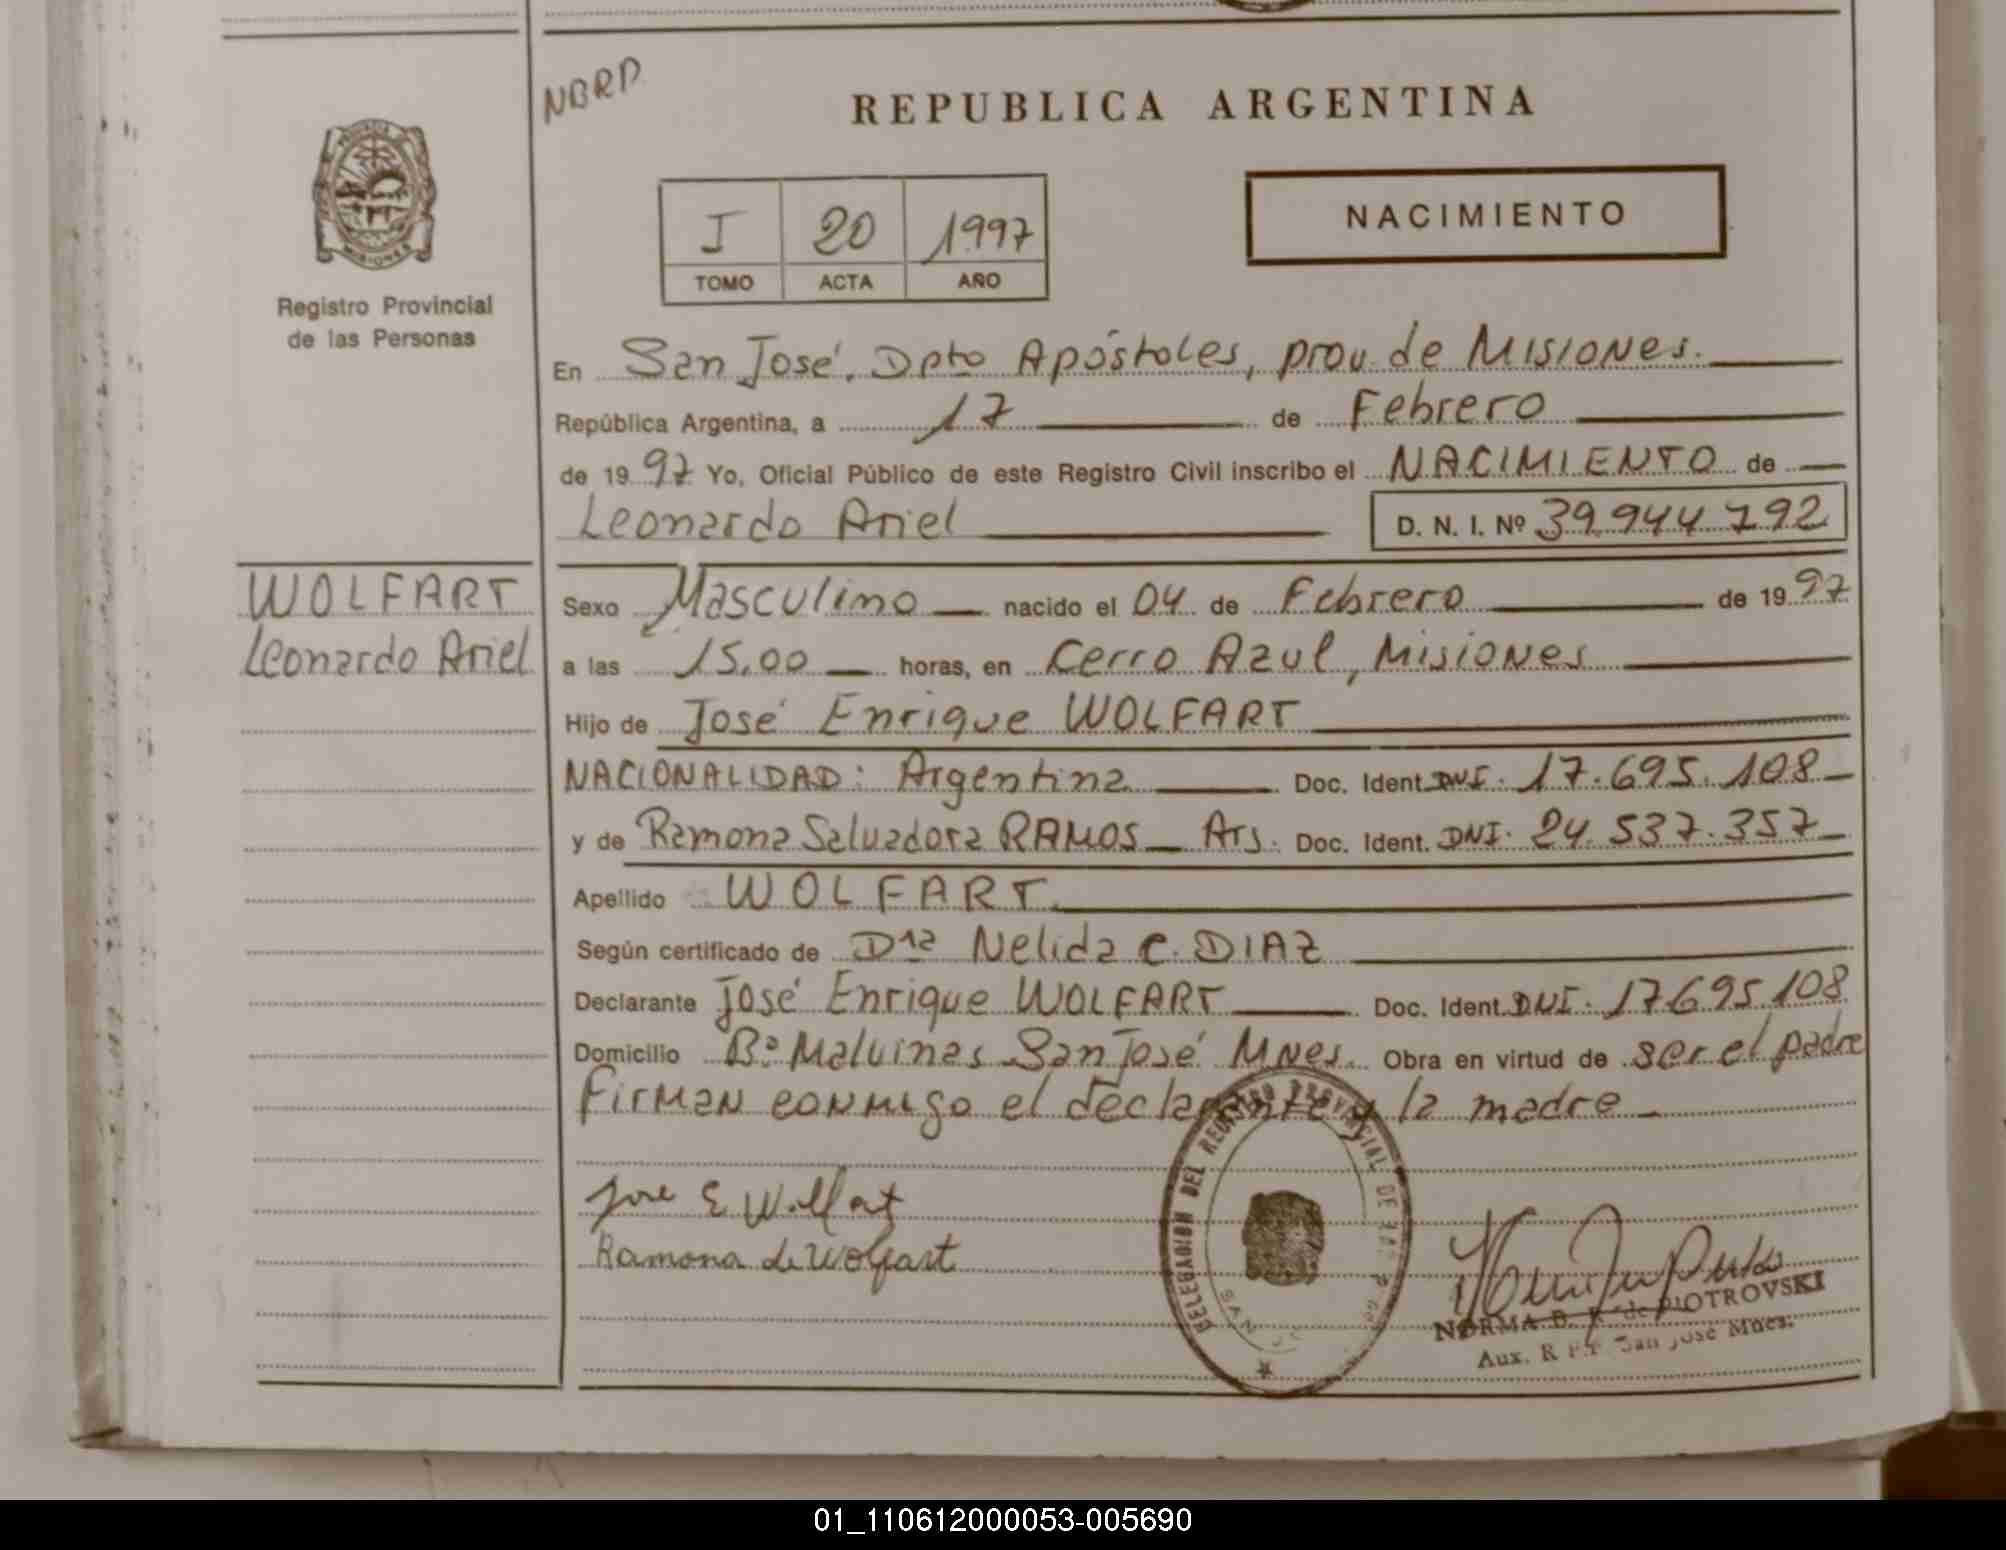 NBRD
REPUBLICA ARGENTINA
PROVINCIA DE MISIONES
Registro Provincial
de las Personas
I 20 1997
TOMO ACTA AÑO
NACIMIENTO
En San José. Dpto Apóstoles, prov. de Misiones.
República Argentina, a 17 de Febrero
de 1997 Yo, Oficial Público de este Registro Civil inscribo el NACIMIENTO de
Leonardo Ariel D. N. I. Nº 39.944.792
WOLFART
Leonardo Ariel
Sexo Masculino nacido el 04 de Febrero de 1997
a las 15.00 horas, en Cerro Azul, Misiones
Hijo de José Enrique WOLFART
NACIONALIDAD: Argentina Doc. Ident. DNI. 17.695.108
y de Ramona Salvadora RAMOS Arg. Doc. Ident. DNI. 24.537.357
Apellido WOLFART
Según certificado de Dra Nelida C. DIAZ
Declarante José Enrique WOLFART Doc. Ident. DNI. 17.695.108
Domicilio Bº Malvinas San José Mnes. Obra en virtud de ser el padre
Firman conmigo el declarante y la madre
Jose E Wolfart
Ramona de Wolfart
DELEGACION DEL REGISTRO PROVINCIAL DE LAS
SAN
NORMA B. de PIOTROVSKI
Aux. R.P.P San José Mnes.
01_110612000053-005690